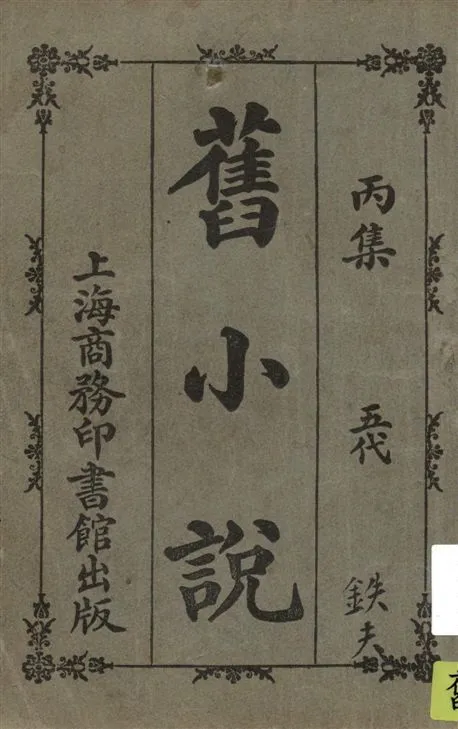 丙集 五代 鉄夫
舊小說
上海商務印書館出版
舊